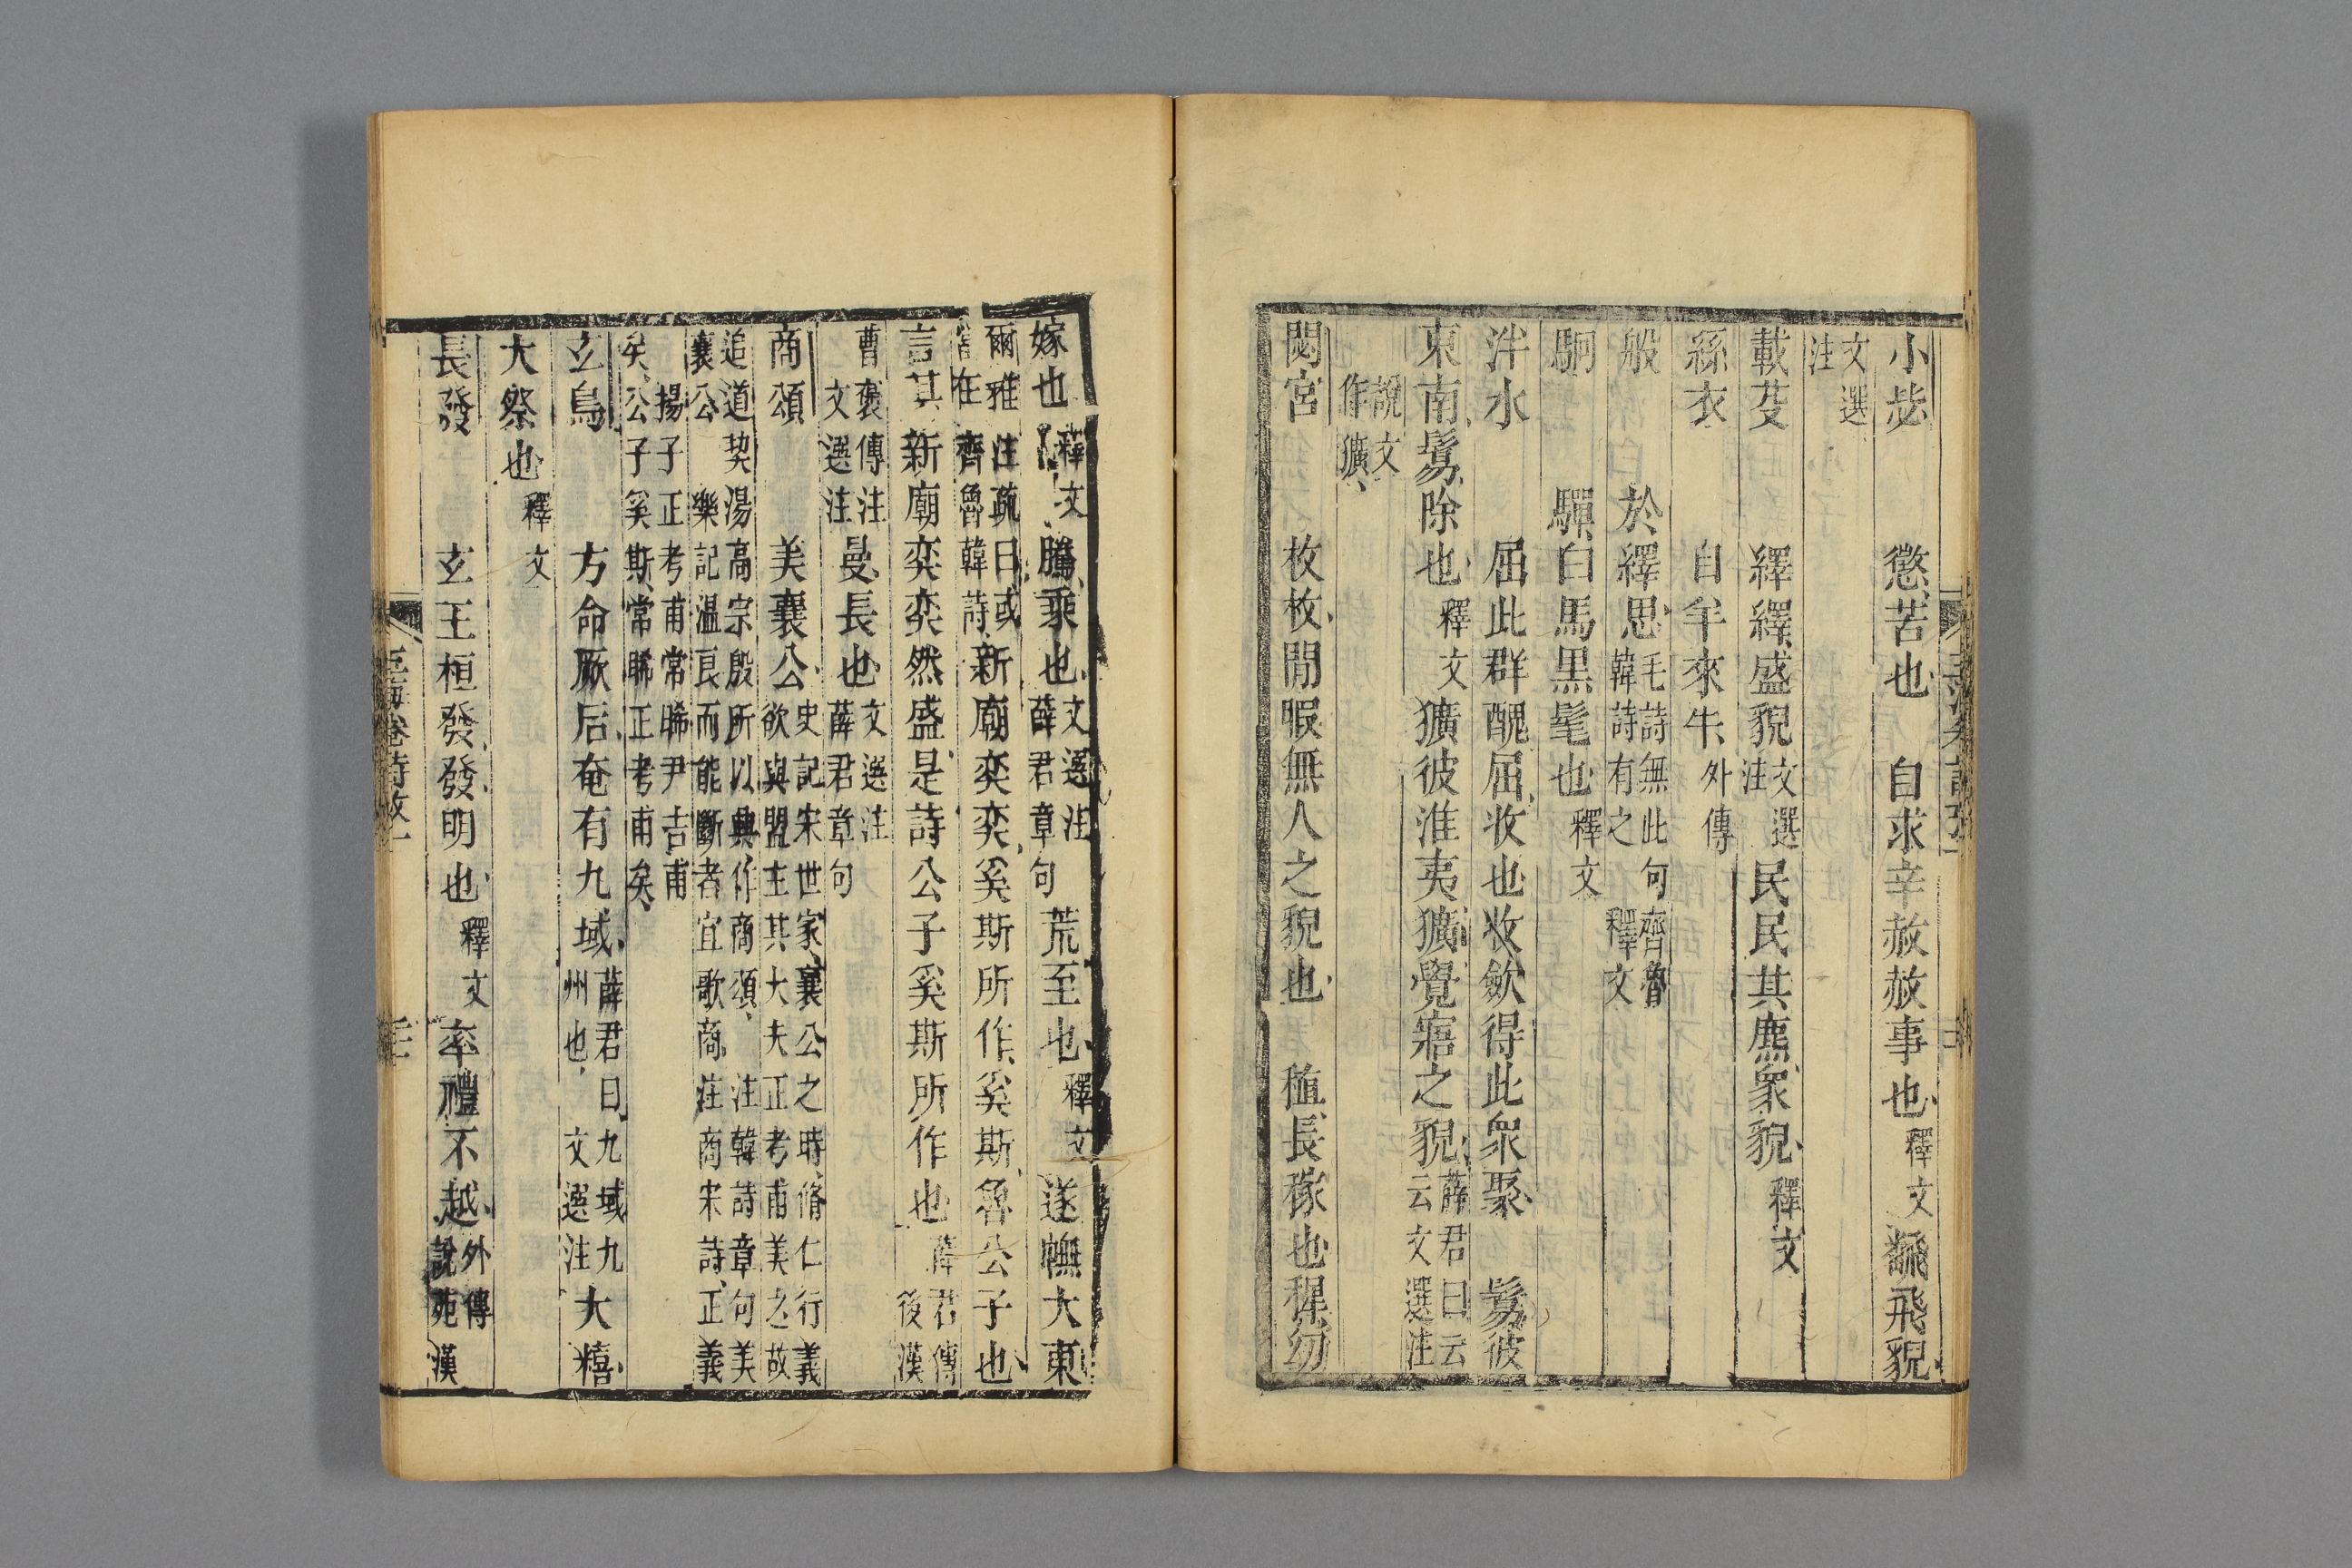 小毖 懲苦也 自求辛赦赦事也釋文飜飛貌
文選
注
載芟 繹繹盛貌文選
注民民其麃衆貌釋文
絲衣 自羊來牛外傳
般 於繹思毛詩無此句齊魯
韓詩有之 釋文
駉 驒白馬黑髦也釋文
泮水 屈此群醜屈收也收斂得此衆聚 鬄彼
東南鬄除也釋文獷彼淮夷獷覺寤之貌薛君曰云
云文選注
說文
作獷
閟宮 枚枚閒暇無人之貌也 稙長稼也稺幼
嫁也釋文騰乘也文選注
薛君章句荒至也釋文遂幠大東
爾雅注疏曰或
在齊魯韓詩新廟奕奕奚斯所作奚斯魯公子也
言其新廟奕奕然盛是詩公子奚斯所作也薛君傳
後漢
曹褒傳注
文選注曼長也文選注
薛君章句
商頌 美襄公史記宋世家襄公之時脩仁行義
欲與盟主其大夫正考甫美之故
追道契湯高宗殷所以興作商頌 注韓詩章句美
襄公 樂記溫良而能斷者宜歌商注商宋詩正義
揚子正考甫常睎尹吉甫
矣公子奚斯常睎正考甫矣
玄鳥 方命厥后奄有九域薛君曰九域九
州也 文選注大糦
大祭也釋文
長發 玄王桓發發明也釋文率禮不越外傳
說苑漢